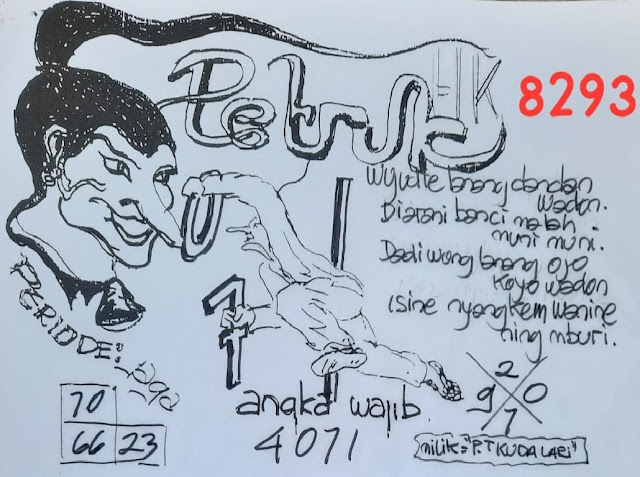 HK
8293
Wujude lanang dandan
wadon.
Diarani banci malah
muni muni.
Dadi wong lanang ojo
koyo wadon
isine nyangkem wanine
ning mburi.
PERIODE:
70
66 23
angka wajib.
4071
2
9 0
7
milik="P.T KUDA LARI"